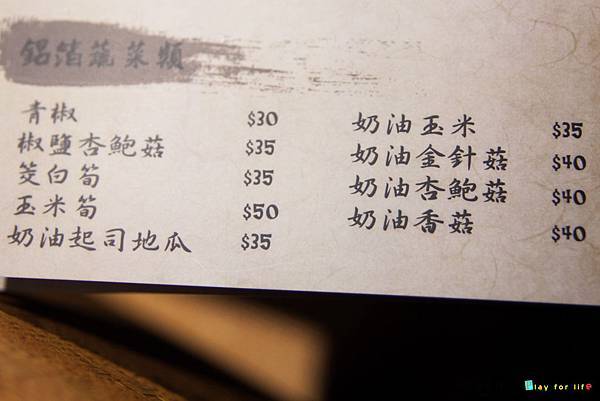 鋁箔蔬菜類
青椒 $30
椒鹽杏鮑菇 $35
筊白筍 $35
玉米筍 $50
奶油起司地瓜 $35
奶油玉米 $35
奶油金針菇 $40
奶油杏鮑菇 $40
奶油香菇 $40
Play for life